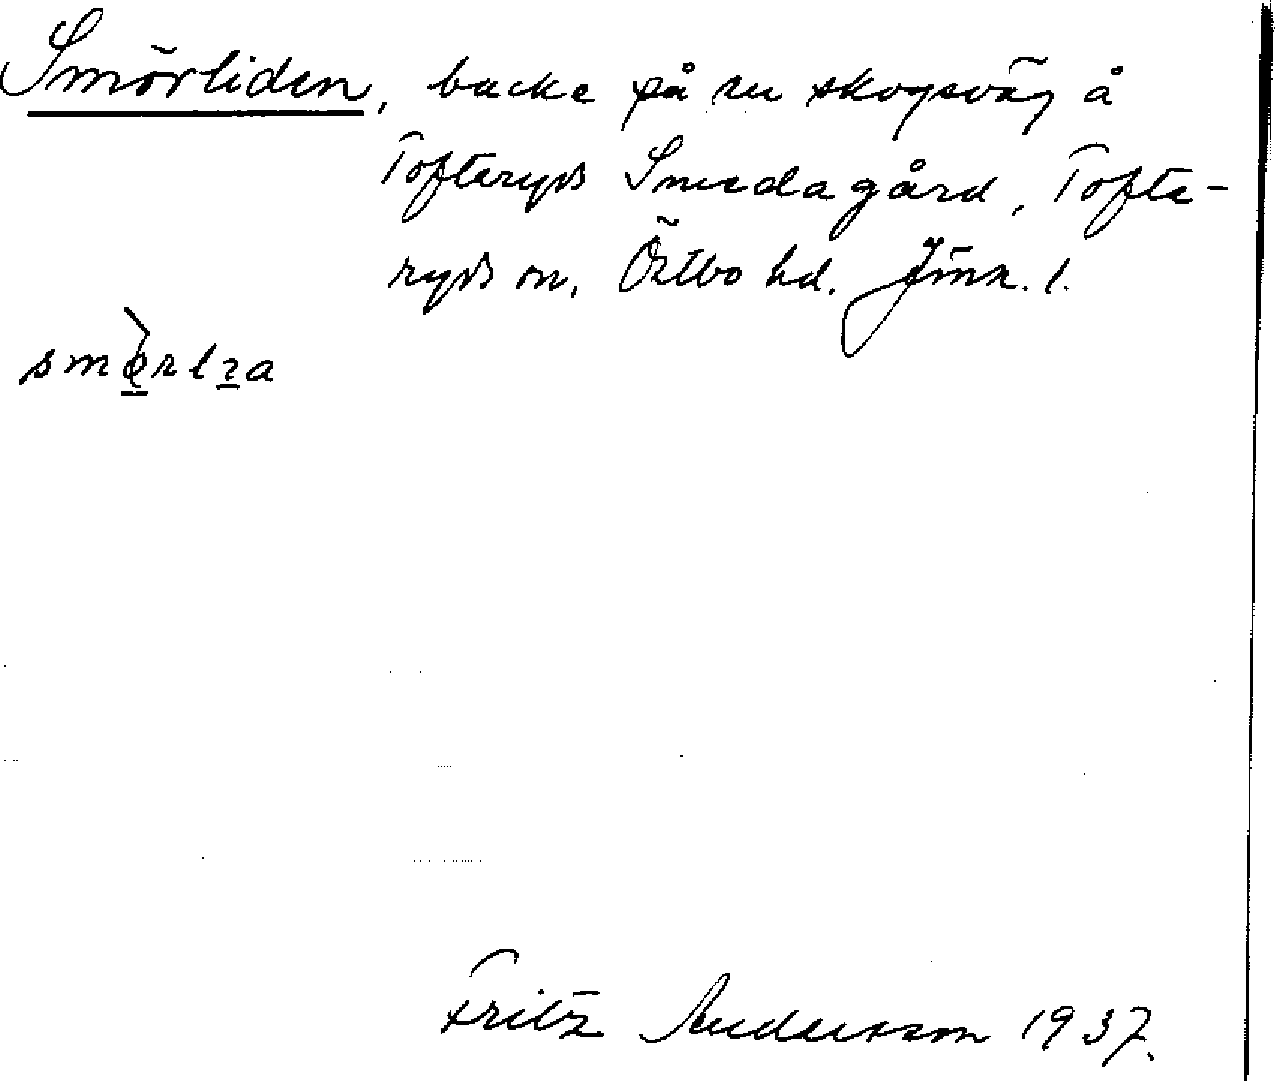 Smörliden, backe på en skogsväg å
Tofteryds Smedagård, Tofte-
ryds sn, Östbo hd. Jönk. l.
Fritz Andersson 1937.